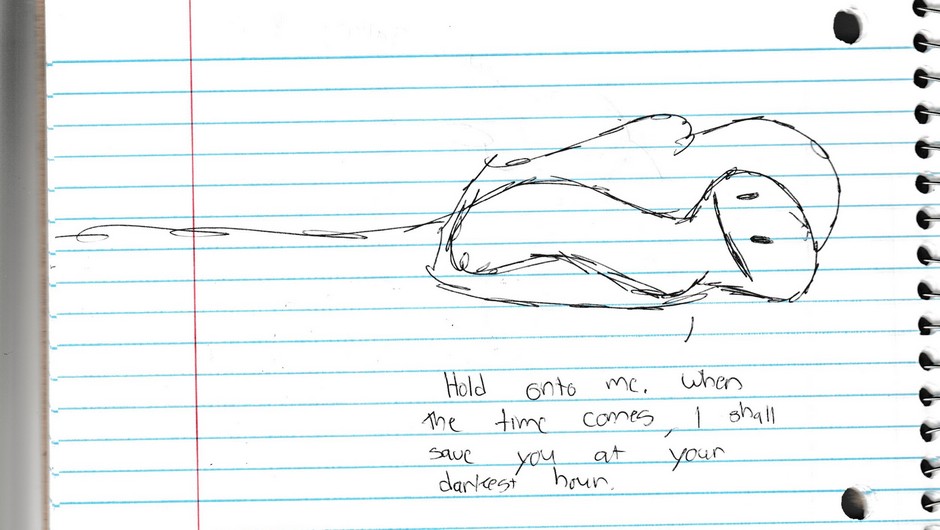 Hold onto me. When
the time comes, I shall
save you at your
darkest hour.